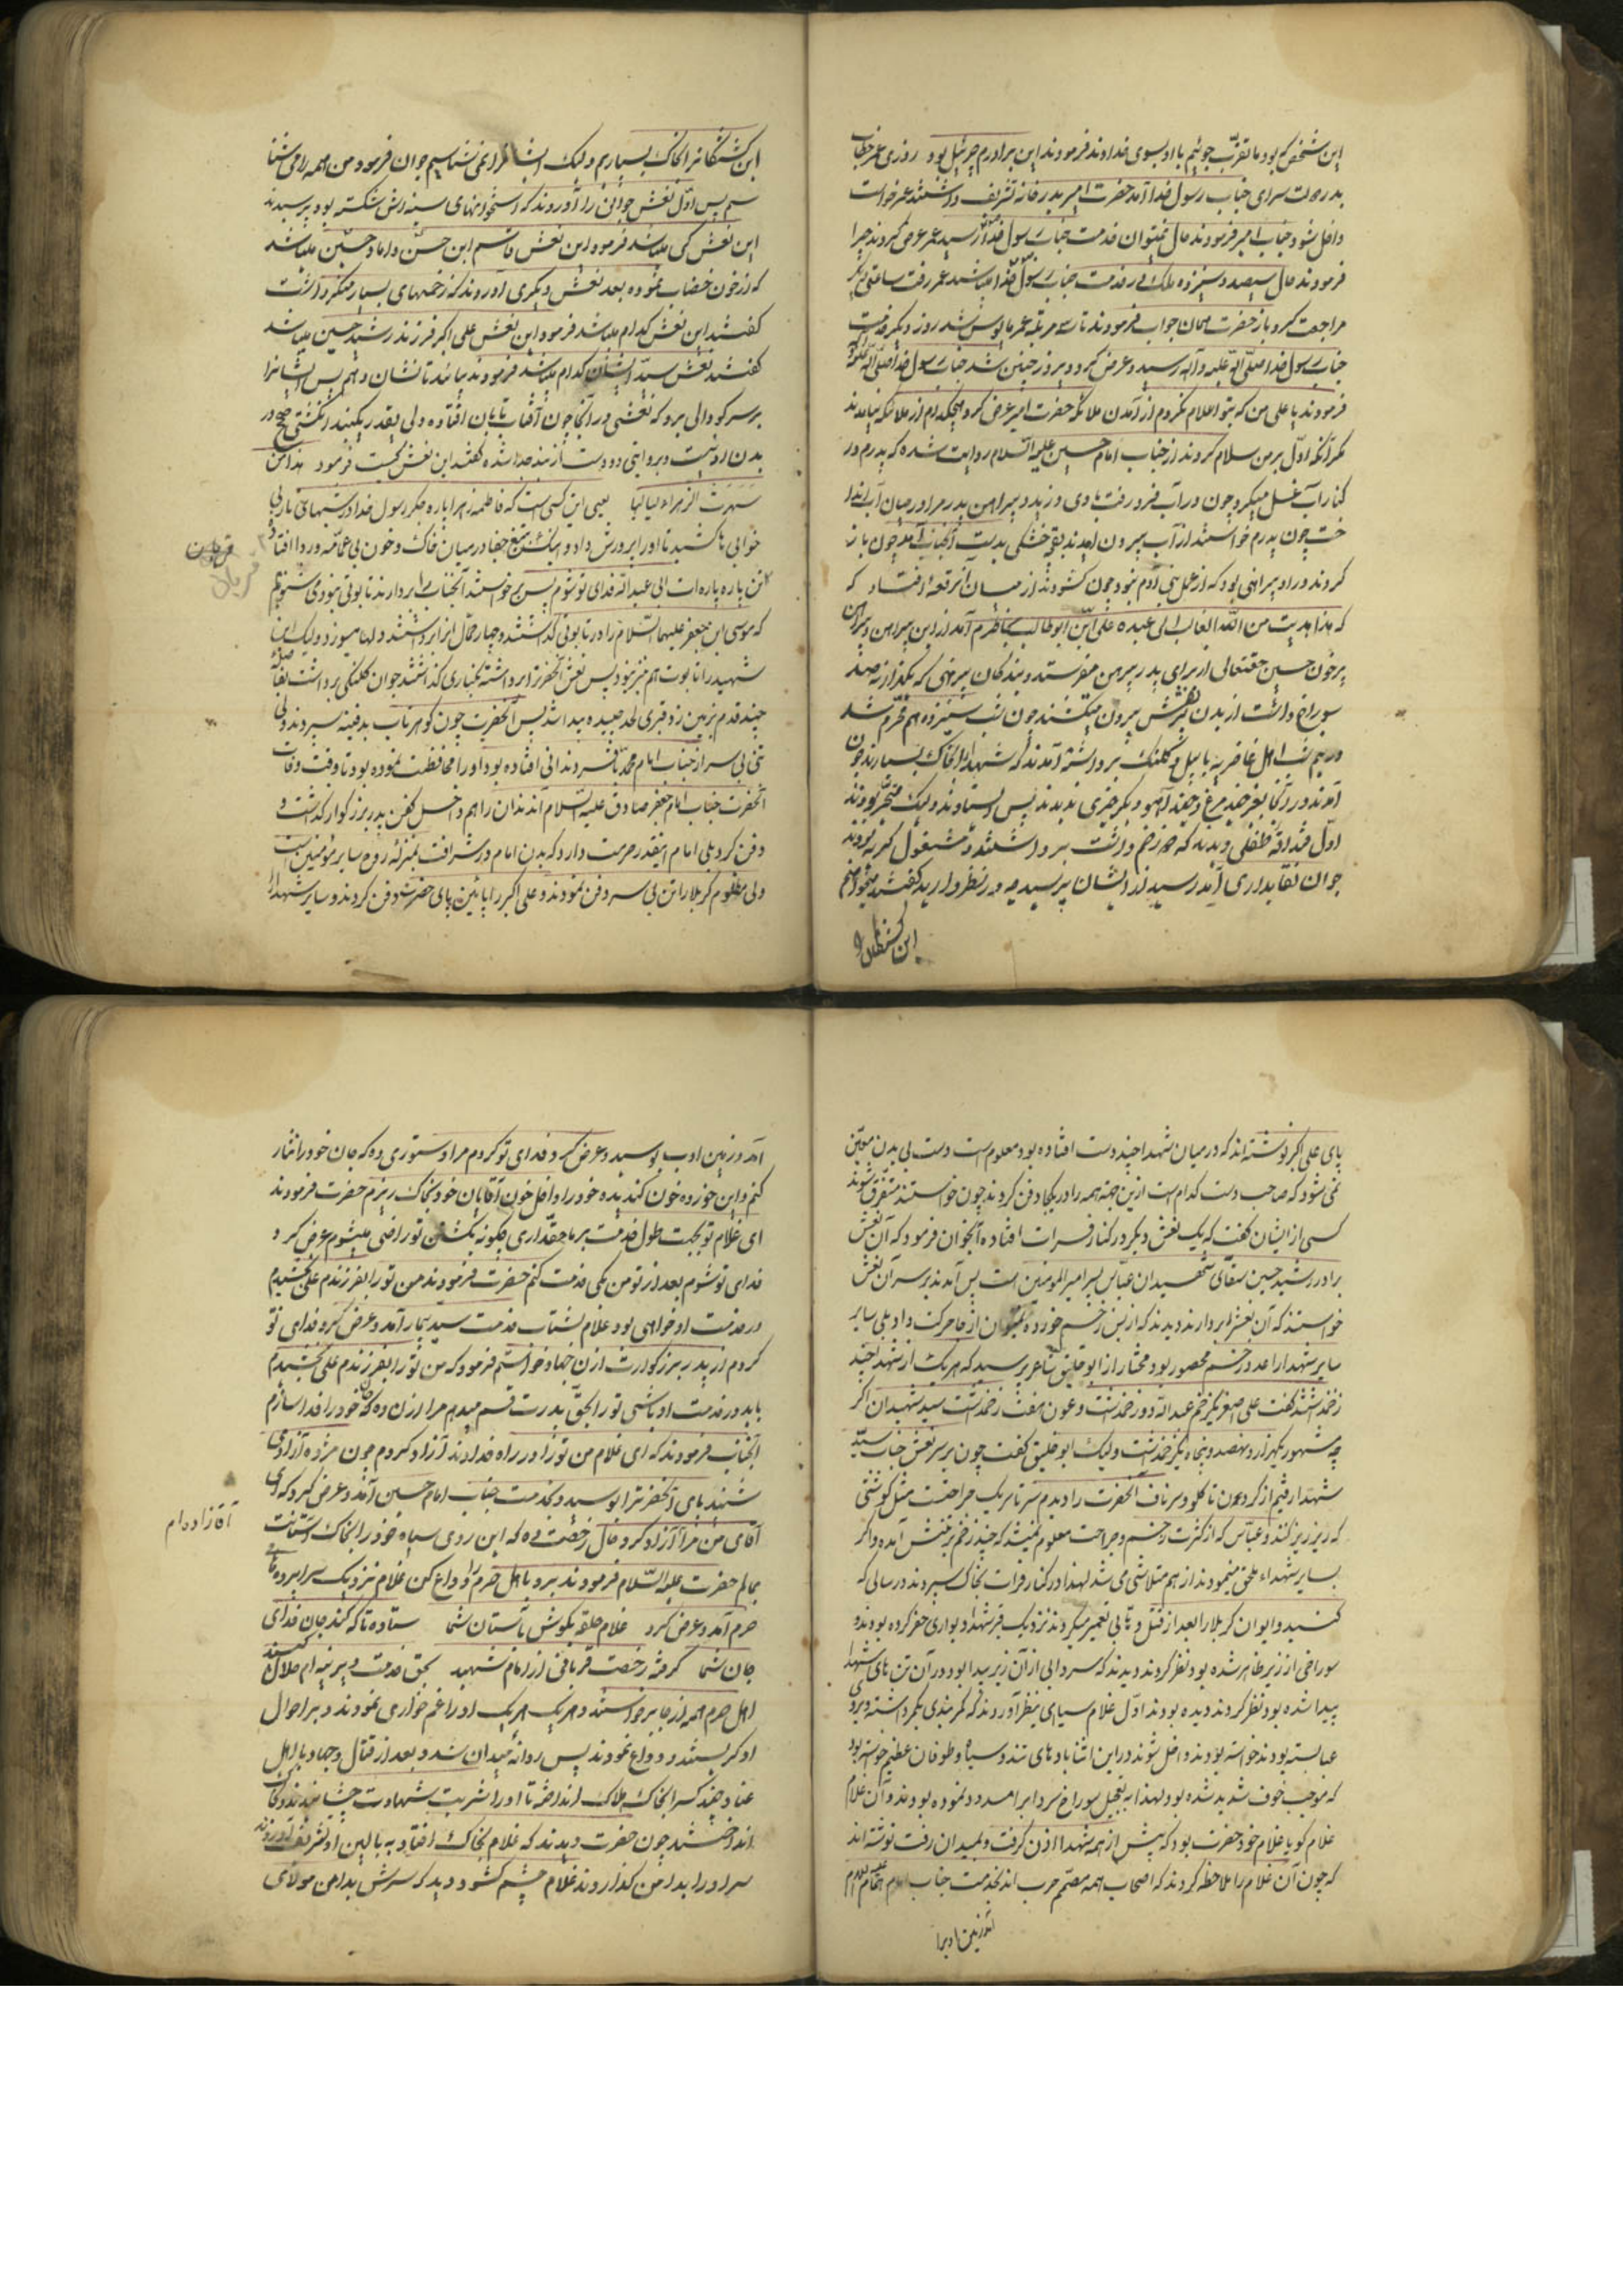 این شخص که بود ما تقرب جوئیم با او بسوی خداوند فرمودند این برادرم جبرئیل بود روزی عمر خطاب
بدر دولت سرای جناب رسول خدا آمد حضرت امیر بدر خانه تشریف داشتند عمر خواست
داخل شود جناب امیر فرمودند حال نمیتوان خدمت جناب رسول خدا رسید عمر عرض کرد چرا
فرمودند حال سیصد و سیزده ملک در خدمت جناب رسول خدا میباشند عمر رفت ساعتی دیگر
مراجعت کرد باز حضرت همان جواب فرمودند تا سه مرتبه عمر مایوس شد روز دیگر خدمت
جناب رسول خدا صلی الله علیه و آله رسید و عرض کرد دیروز چنین شد جناب رسول خدا صلی الله علیه و آله
فرمودند یا علی من که بتو اعلام نکردم از آمدن ملائکه حضرت امیر عرض کرد هیچکدام از ملائکه نیامدند
مگر آنکه اول بر من سلام کردند از جناب امام حسین علیه السلام روایت شده که پدرم در
کنار آب غسل میکرد چون در آب فرو رفت بادی وزید و پیراهن پدر مرا در میان آب اندا
خت چون پدرم خواستند از آب بیرون آیند بقچه خشکی بدست آنجناب آمد چون باز
کردند در او پیراهنی بود که از عمل بنی آدم نبود چون گشودند از میان آن رقعه افتاد که
که هذا هدیت من الله الغالب الی عبده علی ابن ابوطالب بخاطرم آمد از این پیراهن و پیراهن
پر خون حسین حقتعالی از برای پدر پیرهن میفرستد و بندگان پیرهنی که یکهزار نهصد
سوراخ داشت از بدن پسرش بیرون میکشند چون شب سیزدهم محرم شد
در نیم شب اهل غاضریه با بیل و کلنگ برداشته آمدند که شهدا را بخاک بسپارند چون
آمدند در آنجا بغیر چند مرغ و چند آهو دیگر چیزی ندیدند پس ایستادند ولیک متحیر بودند
اول قنداقه طفلی دیدند که زخم داشت برداشتند و مشغول گریه بودند
جوان نقابداری آمد رسید از ایشان پرسید چه در نظر دارید گفتند میخواهیم
این کشتگان را
این کشتگانرا بخاک بسپاریم ولیک ایشانرا نمی‌شناسیم جوان فرمود من همه را می‌شنا
سم پس اول نعش جوانی را آوردند که استخوانهای سینه‌اش شکسته بود پرسیدند
این نعش کی میباشد فرمود این نعش قاسم ابن حسن داماد حسین میباشد
که از خون خضاب نموده بعد نعش دیگری آوردند که زخمهای بسیار منکر داشت
گفتند این نعش کدام میباشد فرمود این نعش علی اکبر فرزند رشید حسین میباشد
گفتند نعش سید ایشان کدام میباشد فرمودند بیائید تا نشان دهم پس ایشانرا
بر سر گودالی برد که نعشی در آنجا چون آفتاب تابان افتاده ولی بقدر یکبند انگشتی صحیح در
بدن او نیست و بروایتی دو دست از بند جدا شده گفتند این نعش کیست فرمود هذا من
سهرت الزهراء لیالیها یعنی این کسی است که فاطمه زهرا پاره جگر رسول خدا در شبهای تار بی
خوابی ها کشید تا او را پرورش داد و اینک از تیغ جفا در میان خاک و خون بی عمامه و ردا افتاده
تن پاره پاره‌ات ابی عبدالله فدای تو شوم پس خواستند آنجناب را بردارند تابوتی نبود می‌شنویم
که موسی ابن جعفر علیهما السلام را در تابوتی گذاشتند و چهار حمال آنرا برداشتند ولی
شهید را تابوت هم نبود پس نعش آنحضرت را برداشته بکناری گذاشتند جوان کلنگی برداشت
چند قدم زمین زد قبری لحد چیده پیدا شد پس آنحضرت چون گوهر ناب بدفینه سپردند ولی
تن بی سر از جناب امام محمد باقر
آنحضرت جناب امام جعفر صادق علیه السلام
دفن کرد بلی امام اینقدر حرمت دارد که بدن امام در شرافت بمنزله روح سایر مؤمنین است
ولی مظلوم کربلا را تن بی سر دفن نمودند و علی اکبر را پائین پای حضرت دفن کردند و سایر شهدا را
پای علی اکبر نوشته‌اند که در میان شهدا چند دست افتاده بود معلوم است دست بی بدن معین
نمی‌شود که صاحب دست کدام است ازین جهت همه را در یکجا دفن کردند چون خواستند متفرق شوند
کسی از ایشان گفت که یک نعش دیگر در کنار فرات افتاده آنجوان فرمود که آن نعش
برادر رشید حسین سقای شهیدان عباس پسر امیر المومنین است پس آمدند بر سر آن نعش
خواستند که آن نعش را بردارند دیدند که از بس زخم خورده نمیتوان از جا حرکت داد بلی سایر
سایر شهدا را عدد زخم محصور بود مختار از ابوخلیق شاعر پرسید که هر یک از شهدا چند
زخم داشتند گفت علی اصغر یکزخم عبدالله دو زخم داشت و عون هفت زخم داشت سید شهیدان اگر
چه مشهور یکهزار و نهصد و پنجاه یکزخم داشت ولیک ابوخلیق گفت چون بر سر نعش جناب سید
شهدا رفتم از گردن تا گلو و سر ناف آنحضرت را دیدم سرتاسر یک جراحت مثل گوشتی
که ریز ریز کنند و عباس که از کثرت زخم و جراحت معلوم نمیشد که چند زخم بر تنش آمده و اگر
بسایر شهداء ملحق مینمودند از هم متلاشی می‌شد لهذا در کنار فرات بخاک سپردند در سالی که
گنبد و ایوان کربلا را بعد از قتل وهابی تعمیر میکردند نزدیک قبر شهدا دیواری حفر کرده بودند
سوراخی از زیر ظاهر شده بود نظر کردند دیدند که سردابی از آن زیر پیدا بود و در آن تن های شهدا
پیدا شده بود نظر کردند دیده بودند اول غلام سیاهی بنظر آوردند که کمربندی بکمر داشته و برد
عبا بسته بودند خواسته بودند داخل شوند در این اثنا بادهای تند و سیاه و طوفان عظیم خواسته بود
که موجب خوف شدید شده بود لهذا به تعجیل سوراخ سرداب را مسدود نموده بودند و آن غلام
غلام گویا غلام خود حضرت بود که پیش از همه شهدا اذن گرفت و بمیدان رفت نوشته اند
که چون آن غلام را ملاحظه کردند که اصحاب همه مصمم حرب اند بخدمت جناب امام علیه السلام
آمد و زمین ادب
آمد و زمین ادب بوسید و عرض کرد فدای تو گردم مرا دستوری ده که جان خود را نثار
کنم و این خورده خون گندیده خود را داخل خون آقایان خود بخاک ریزم حضرت فرمودند
ای غلام تو بجهت طول خدمت بر ما حق داری چگونه بکشتن تو راضی میشوم عرض کرد
فدای تو شوم بعد از تو من کی خدمت کنم حضرت فرمودند من تو را بفرزندم علی بخشیدم
در خدمت او خواهی بود غلام بشتاب خدمت سید بیمار آمد و عرض کرد فدای تو
گردم از پدر بزرگوارت اذن جهاد خواستم فرمود که من تو را بفرزندم علی بخشیدم
باید در خدمت او باشی تو را بحق پدرت قسم میدهم مرا اذن ده که خود را فدا سازم
آنجناب فرمودند که ای غلام من تو را در راه خداوند آزاد کردم چون مژده آزادی
شنید پای آنحضرت را بوسید و بخدمت جناب امام حسین آمد و عرض کرد که ای
آقای من مرا آزاد کرد حال رخصت ده که این روی سیاه خود را بخاک آستانت
بمالم حضرت علیه السلام فرمودند برو با اهل حرم وداع کن غلام نزدیک سراپرده‌های
آقازاده‌ام
حرم آمد و عرض کرد غلام حلقه بگوش باستان شما ستاده تا که کند جان فدای
جان شما گرفته رخصت قربانی از امام شهید بحق خدمت دیرینه‌ام حلال کنید
اهل حرم همه از جا برخواستند و هر یک هر یک او را غم خواری نمودند و بر احوال
او گریستند و وداع نمودند پس روانه میدان شد و بعد از قتال و جهاد با اهل
عناد چند کس را بخاک هلاک انداخته تا او را شربت شهادت چشانیدند و بخاک
انداختند چون حضرت دیدند که غلام بخاک افتاد به بالین او تشریف آوردند
سر او را بدامن گذاردند غلام چشم گشود دید که سرش بدامن مولای